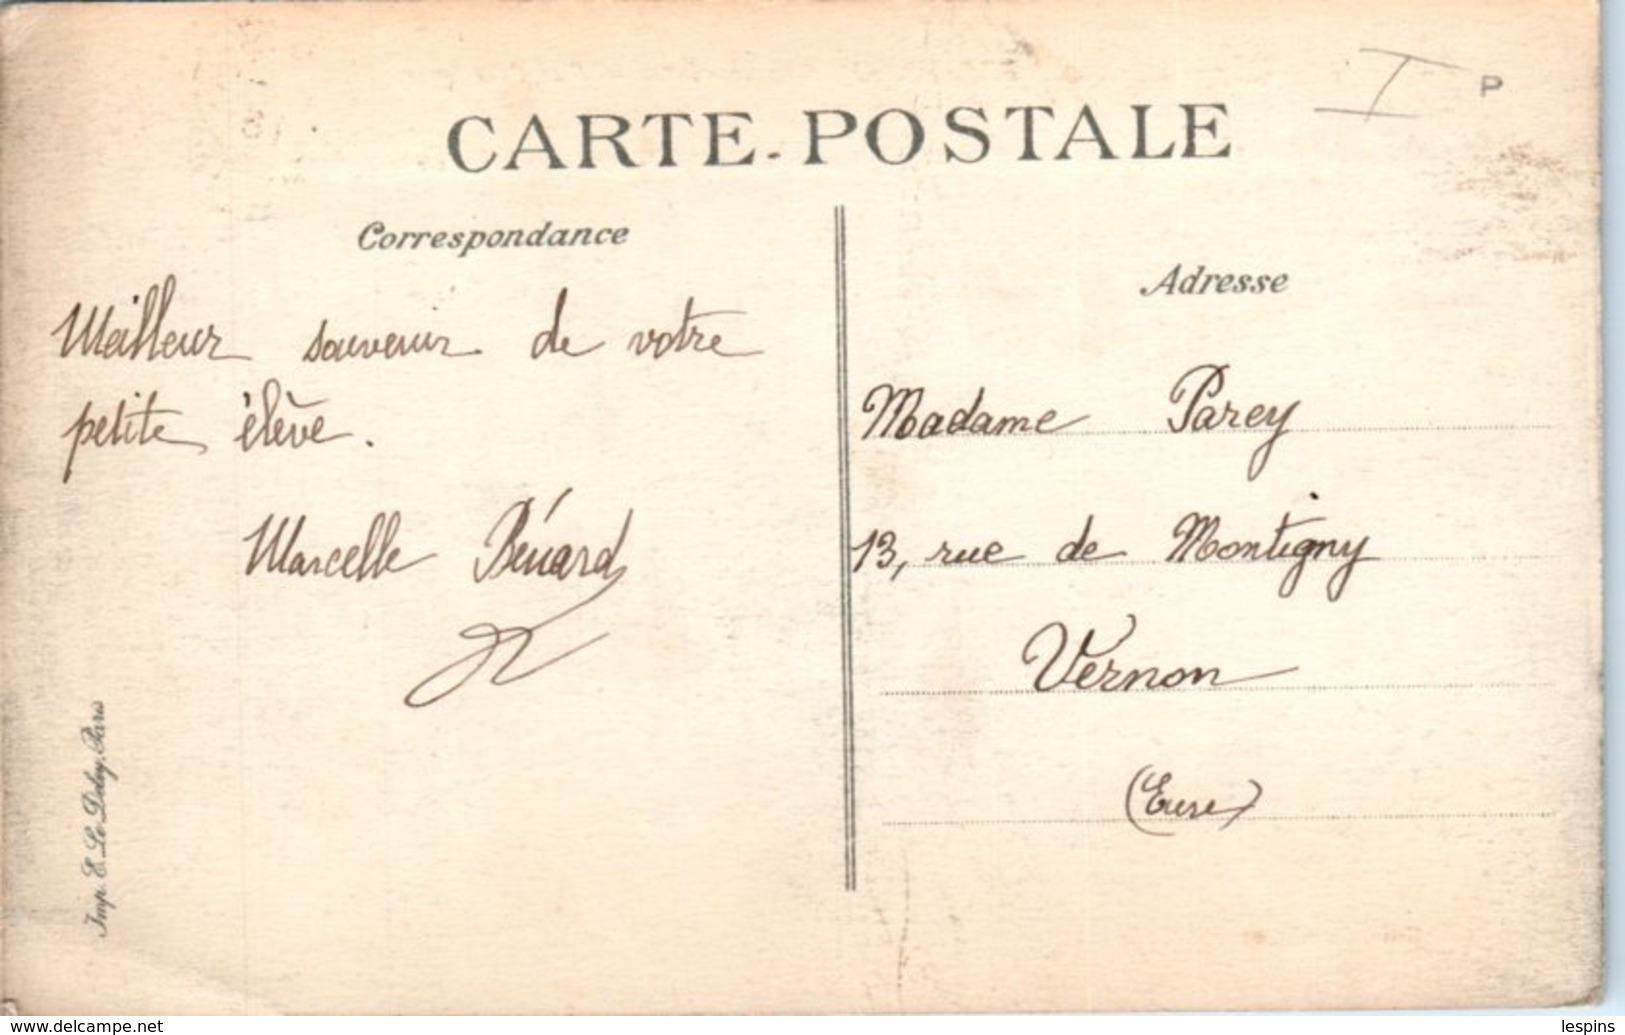 CARTE-POSTALE
I
P
Correspondance
Adresse
Meilleur souvenir de votre
petite élève.
Marcelle Bénard
Madame Parey
13, rue de Montigny
Vernon
(Eure)
Imp. E. Le Deley, Paris
www.delcampe.net
lespins